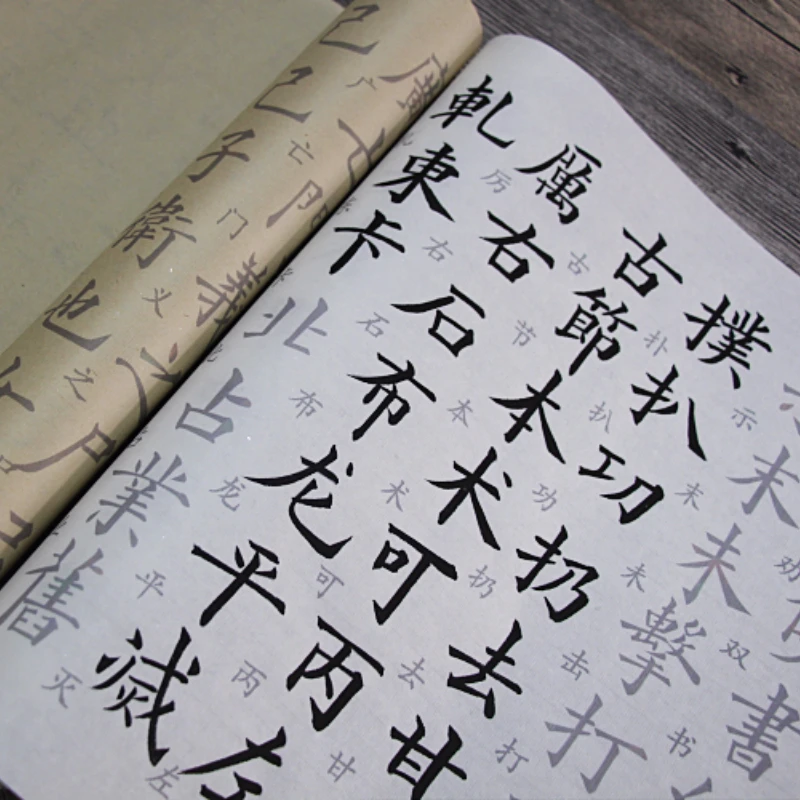 書
双 书
末 未 擊 打
示 末 未 击 打
撲 扒 功 扔 去 甘
朴 扒 功 扔 去 甘
古 節 本 术 可 丙 左
古 节 本 术 可 丙 左
厲 右 石 布 龙 平 滅
厉 右 石 布 龙 平 灭
軋 東 卡 北 占 業 舊
廣 門 義 之 尸
广 亡 门 义 之
己 已 子 衛 也